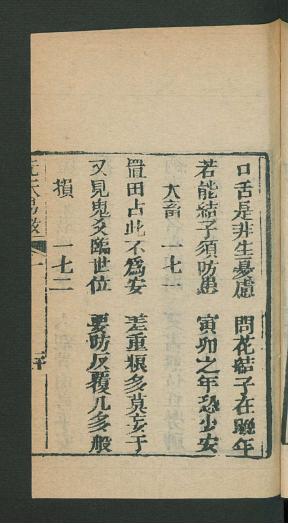 口舌是非生憂慮　問花結子在懸年
若能結子須防患　寅卯之年恐少安
大畜　一七一
置田占此不爲安　差重粮多莫妄于
又見鬼爻臨世位　要防反覆几多般
損　一七二